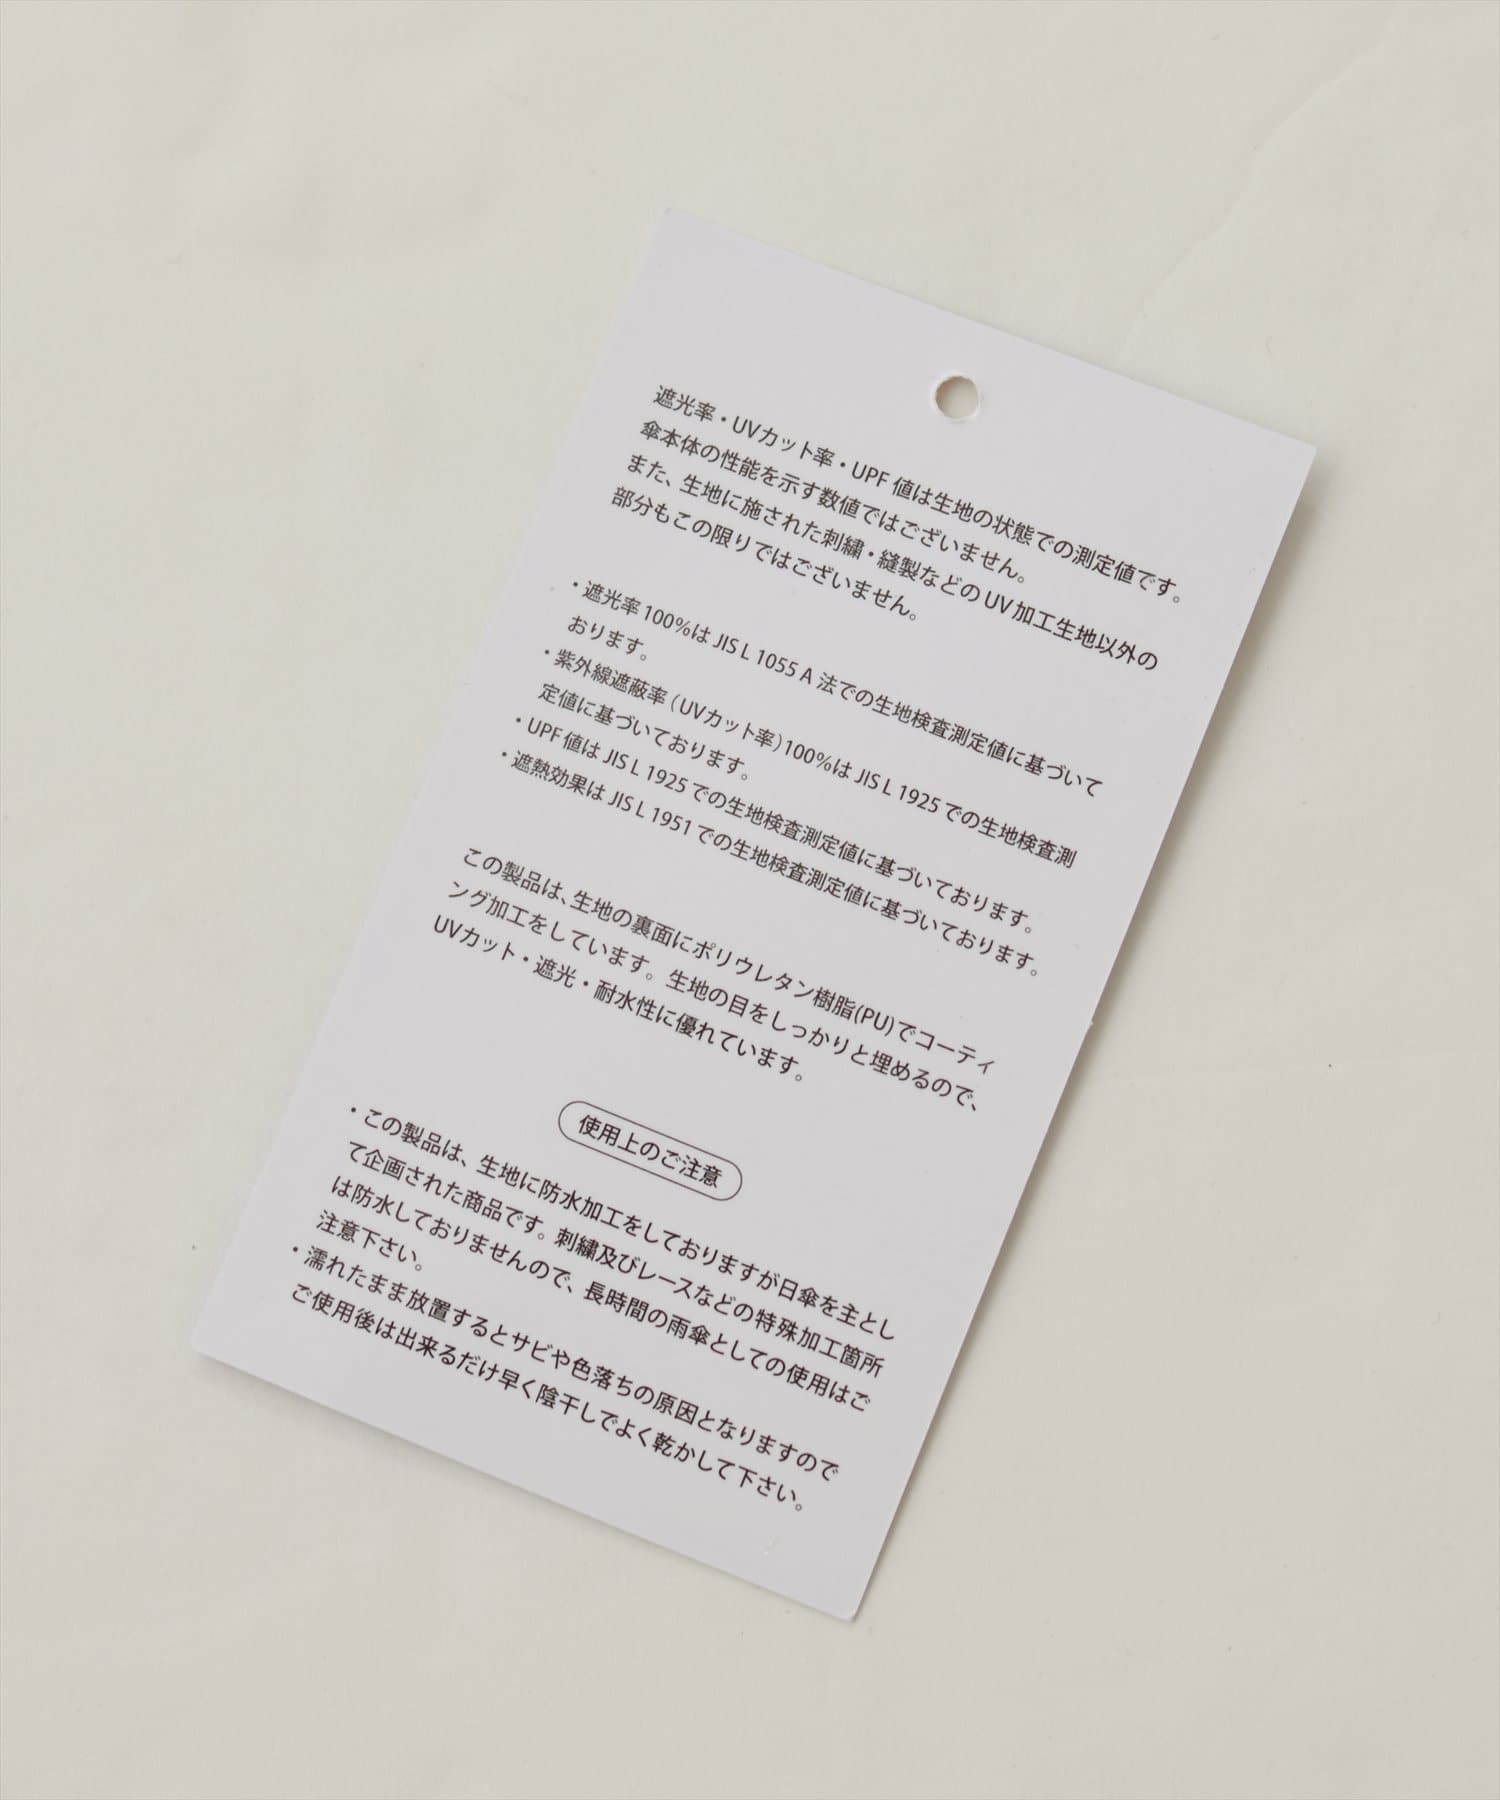 遮光率・UVカット率・UPF 値は生地の状態での測定値です。
傘本体の性能を示す数値ではございません。
また、生地に施された刺繍・縫製などの UV 加工生地以外の
部分もこの限りではございません。
・遮光率 100%は JIS L 1055 A 法での生地検査測定値に基づいて
おります。
・紫外線遮蔽率 (UVカット率) 100%は JIS L 1925 での生地検査測
定値に基づいております。
・UPF 値は JIS L 1925 での生地検査測定値に基づいております。
・遮熱効果は JIS L 1951 での生地検査測定値に基づいております。
この製品は、生地の裏面にポリウレタン樹脂(PU)でコーティ
ング加工をしています。生地の目をしっかりと埋めるので、
UVカット・遮光・耐水性に優れています。
使用上のご注意
・この製品は、生地に防水加工をしておりますが日傘を主とし
て企画された商品です。刺繍及びレースなどの特殊加工箇所
は防水しておりませんので、長時間の雨傘としての使用はご
注意下さい。
・濡れたまま放置するとサビや色落ちの原因となりますので
ご使用後は出来るだけ早く陰干しでよく乾かして下さい。